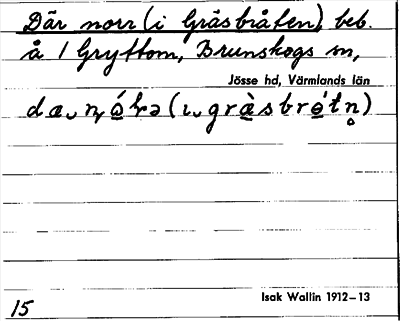 Där norr (i Gräsbråten), beb.
å 1 Gryttom, Brunskogs sn,
Jösse hd, Värmlands län
Isak Wallin 1912–13
15